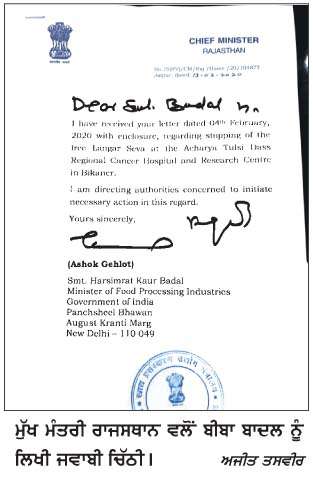 CHIEF MINISTER
RAJASTHAN
Dear Smt. Badal
I have received your letter dated 04th February,
2020 with enclosure, regarding stopping of the
free Langar Seva at the Acharya Tulsi Dass
Regional Cancer Hospital and Research Centre
in Bikaner.
I am directing authorities concerned to initiate
necessary action in this regard.
Yours sincerely,
(Ashok Gehlot)
Smt. Harsimrat Kaur Badal
Minister of Food Processing Industries
Government of india
Panchsheel Bhawan
August Kranti Marg
New Delhi – 110 049
ਮੁੱਖ ਮੰਤਰੀ ਰਾਜਸਥਾਨ ਵਲੋਂ ਬੀਬਾ ਬਾਦਲ ਨੂੰ
ਲਿਖੀ ਜਵਾਬੀ ਚਿੱਠੀ। ਅਜੀਤ ਤਸਵੀਰ